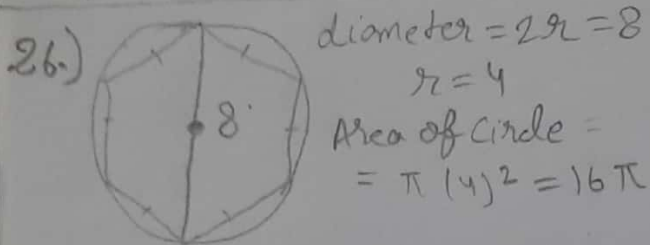 26.)
8
diameter = 2r = 8
r = 4
Area of Circle =
= π (4)² = 16 π